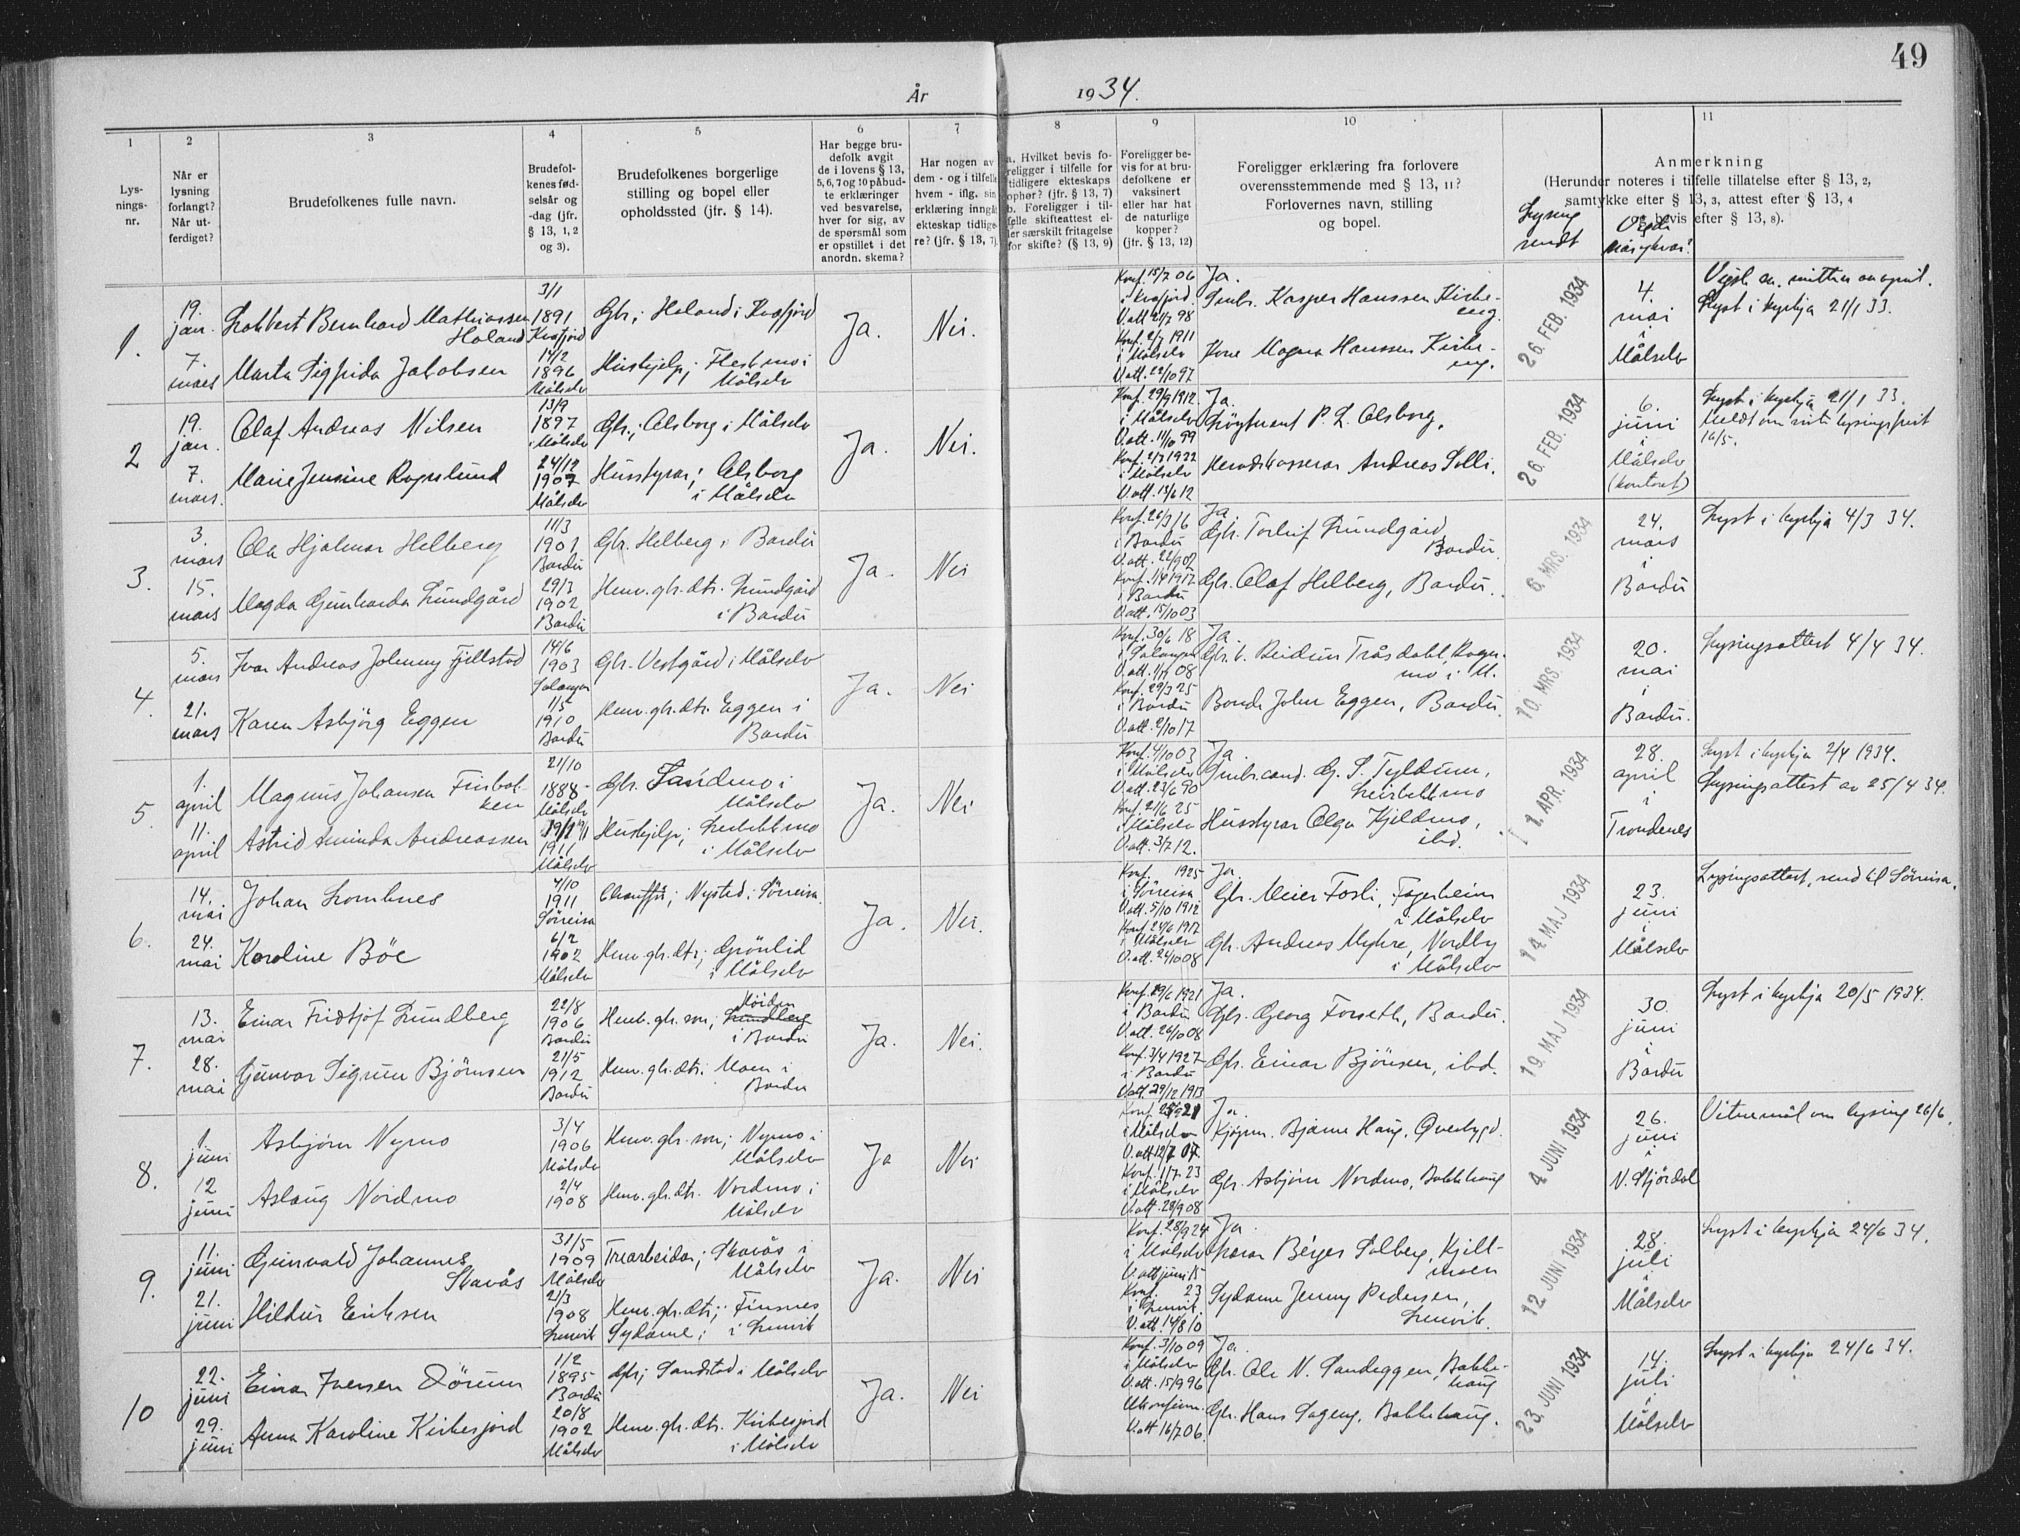 49
År 1934.
1
2
3
4
5
6
7
8
9
10
11
Lys-
nings-
nr.
Når er
lysning
forlangt?
Når ut-
ferdiget?
Brudefolkenes fulle navn.
Brudefol-
kenes fød-
selsår og
-dag (jfr.
§ 13, 1, 2
og 3).
Brudefolkenes borgerlige
stilling og bopel eller
opholdssted (jfr. § 14).
Har begge bru-
defolk avgit
de i lovens § 13,
5, 6, 7 og 10 påbud-
te erklæringer
ved besvarelse,
hver for sig, av
de spørsmål som
er opstillet i det
anordn. skema?
Har nogen av
dem - og i tilfelle
hvem - iflg. sin
erklæring inngåt
ekteskap tidlige-
re? (jfr. § 13, 7)
a. Hvilket bevis fo-
religger i tilfelle for
tidligere ekteskaps
ophør? (jfr. § 13, 7)
b. Foreligger i til-
felle skifteattest el-
ler særskilt fritagelse
for skifte? (§ 13, 9)
Foreligger be-
vis for at bru-
defolkene er
vaksinert
eller har hat
de naturlige
kopper?
(jfr. § 13, 12)
Foreligger erklæring fra forlovere
overensstemmende med § 13, 11?
Forlovernes navn, stilling
og bopel.
Lysing
sendt
Anmerkning
(Herunder noteres i tilfelle tillatelse efter § 13, 2,
samtykke efter § 13, 3, attest efter § 13, 4
og bevis efter § 13, 8).
1.
19.
jan.
7.
mars
Bernhard Mathiassen
Holand
Marta Sigfrida Jakobsen
3/1
1891
Kvæfjord
14/2
1896
Målselv
Gbr; Holand i Kvæfjord
Hushjelp; Flestmo i
Målselv
Ja.
Nei.
Konf. 15/7 06
i Kvæfjord.
V.att 21/7 98
Konf. 2/7 1911
i Målselv
V.att. 22/10 97
Ja.
Kasper Hanssen Kirke-
eng.
Kone Magna Hanssen Kirke-
eng.
26. FEB. 1934
4.
mai
i
Målselv
Lyst i kyrkja 21/1 33.
2
19.
jan.
7.
mars.
Olaf Andreas Nilsen
Marie Jensine Rognlund
13/9
1897
i Målselv
24/12
1907
Målselv
Gbr.; Alsborg i Målselv
Husstyrar; Alsborg
i Målselv
Ja.
Nei.
Konf. 29/9 1912
i Målselv
V.att. 11/6 99
Konf. 2/7 1922
i Målselv
V.att. 13/6 12
Ja.
Løytnant P. L. Alsborg.
Heradskasserar Andreas Solli.
26. FEB. 1934
6.
juni
i
Målselv
(kontoret)
Lyst i kyrkja 21/1 33.
16/5.
3.
3.
mars
15.
mars
Ola Hjalmar Helberg
Magda Gunharda Lundgård
11/3
1901
Bardu
29/3
1902
Bardu
Gbr. Helberg i Bardu
Hemv. gbr. dtr. Lundgård
i Bardu
Ja.
Nei
Konf. 26/3 16
i Bardu
V.att. 22/9 02
Konf. 1/4 1917
i Bardu
V.att. 15/10 03
Ja
Gbr. Torleif Lundgård
Bardu.
Gbr. Olaf Helberg, Bardu.
6. MRS. 1934
24.
mars
i
Bardu
Lyst i kyrkja 4/3 34.
4.
5.
mars
21.
mars
Ivar Andreas Johnny Fjellstad
Karen Asbjørg Eggen
14/6
1903
Salangen
1/5
1910
Bardu
Gbr. Vestgård i Målselv
Hemv. gbr. dtr. Eggen i
Bardu
Ja.
Nei
Konf. 30/6 18
i Salangen
V.att. 1/9 08
Konf. 29/3 25
i Bardu
V.att. 2/10 17
Ja
mo i M.
Bonde John Eggen, Bardu.
10. MRS. 1934
20.
mai
i
Bardu.
Lysingsattest 4/4 34.
5.
1.
april
11.
april
Magnus Johansen Finbak-
ken
Astrid Aminda Andreassen
21/10
1888
Målselv
1911
Målselv
Gbr. Sandmo i
Målselv
Hushjelp;
i Målselv
Ja.
Nei
Konf. 4/10 03
i Målselv
V.att. 23/6 90
Konf. 21/6 25
i Målselv
V.att. 3/7 12.
Ja
G. S. Tyldum,
Husstyrar Olga Kjeldmo,
ibd.
1. APR. 1934
28.
april
i
Trondenes
Lyst i kyrkja 2/4 1934.
Lysingsattest av 25/4 34.
6.
14.
mai
24.
mai
Johan Lombnes
Karoline Böe
4/10
1911
Sörreisa
6/2
1902
Målselv
Chauffør; Nysted i Sörreisa
Hemv. gbr. dtr; Grönlid
i Målselv
Ja.
Nei.
Konf. 1925
i Sörreisa
V.att. 5/10 1912
Konf 24/6 1917
i Målselv
V.att. 24/10 08
Ja.
Gbr. Meier Fosli, Fagerheim
i Målselv
Gbr. Andreas Myhre, Nordby
i Målselv
14 MAJ 1934
23.
juni
i
Målselv
Lysingsattest, send til Sörreisa.
7.
13.
mai
28.
mai
Einar Fridtjof Lundberg
Gunvor Sigrun Björnsen
22/8
1906
Bardu
21/5
1912
Bardu
Hemv. gbr. son; Lundberg
i Bardu
Hemv. gbr. dtr. Moen i
Bardu
Ja.
Nei.
Konf. 29/6 1921
i Bardu
V.att. 26/10 08
Konf. 3/4 1927
i Bardu
V.att. 29/12 1913
Ja.
Gbr. Georg Forseth, Bardu.
Gbr. Einar Björnsen, ibd.
19. MAJ 1934
30.
juni
i
Bardu
Lyst i kyrkja 20/5 1934.
8.
1.
juni
12
juni
Asbjørn Nymo
Aslaug Nordmo
3/4
1906
Målselv
2/4
1908
Hemv. gbr. son; Nymo i
Målselv
Hemv. gbr. dtr. Nordmo i
Målselv
Ja
Nei
i Målselv
V.att 12/7 07.
Konf. 1/7. 23
i Målselv
V.att. 28/9 08
Ja.
Kjøpm. Bjarne Haug, Øverbygd.
Gbr. Asbjørn Nordmo, Bakkehaug
4 JUNI 1934
26.
juni
i
N. Stjördal
Vitnemål om lysing 26/6.
9.
11.
juni
21.
juni
Gunvald Johannes
Stavås
Hildur Eriksen
31/5
1909
Målselv
21/3
1908
Lenvik
Trearbeidar; Stavås i
Målselv
Hemv. gbr. dtr; Finsnes
Sydame; i Lenvik
Ja.
Nei
Konf. 28/9 24
i Målselv
V.att juni 15
Konf. 23
i Lenvik.
V.att. 14/8 10
Ja.
Birger Solberg, Kjell-
moen
Sydame Jenny Pedersen,
Lenvik.
12. JUNI 1934
28.
juli
i
Målselv
Lyst i kyrkja 24/6 34.
10
22.
juni
29.
juni
Einar Iversen Dörum
Anna Karoline Kirkesjord
1/2
1895
Bardu
20/8
1902
Målselv
Gbr; Sandstad i Målselv
Hemv. gbr. dtr. Kirkesjord
i Målselv
Ja.
Nei
Konf. 3/10 09
i Målselv
V.att. 15/9 96
Ukonfirm.
V.att 16/7 06.
Ja
Gbr. Ole N. Sandeggen, Bakke-
haug
Gbr. Hans Sageng, Bakkehaug.
23. JUNI 1934
14.
juli
i
Målselv
Lyst i kyrkja 24/6 34.